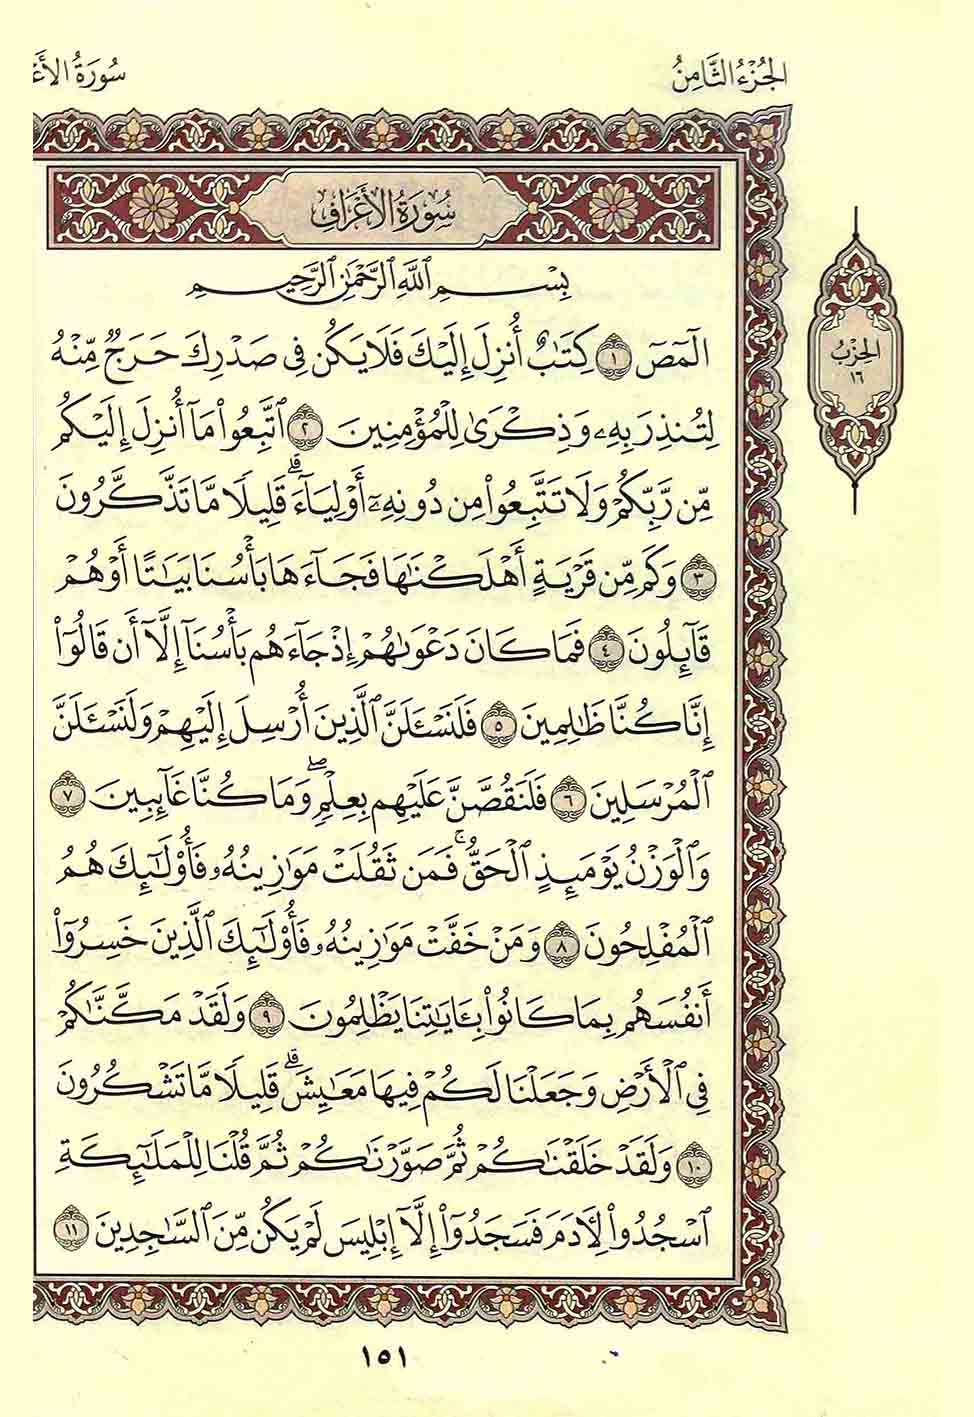 الجُزْءُ الثَّامِنُ
سُورَةُ الأَعْ
سُورَةُ الأَعْرَافِ
الحِزْبُ
١٦
بِسْمِ ٱللَّهِ ٱلرَّحْمَٰنِ ٱلرَّحِيمِ
الٓمٓصٓ ١ كِتَٰبٌ أُنزِلَ إِلَيْكَ فَلَا يَكُن فِى صَدْرِكَ حَرَجٌ مِّنْهُ
لِتُنذِرَ بِهِۦ وَذِكْرَىٰ لِلْمُؤْمِنِينَ ٢ ٱتَّبِعُوا۟ مَآ أُنزِلَ إِلَيْكُم
مِّن رَّبِّكُمْ وَلَا تَتَّبِعُوا۟ مِن دُونِهِۦٓ أَوْلِيَآءَ ۗ قَلِيلًا مَّا تَذَكَّرُونَ
٣ وَكَم مِّن قَرْيَةٍ أَهْلَكْنَٰهَا فَجَآءَهَا بَأْسُنَا بَيَٰتًا أَوْ هُمْ
قَآئِلُونَ ٤ فَمَا كَانَ دَعْوَىٰهُمْ إِذْ جَآءَهُم بَأْسُنَآ إِلَّآ أَن قَالُوٓا۟
إِنَّا كُنَّا ظَٰلِمِينَ ٥ فَلَنَسْـَٔلَنَّ ٱلَّذِينَ أُرْسِلَ إِلَيْهِمْ وَلَنَسْـَٔلَنَّ
ٱلْمُرْسَلِينَ ٦ فَلَنَقُصَّنَّ عَلَيْهِم بِعِلْمٍ ۖ وَمَا كُنَّا غَآئِبِينَ ٧
وَٱلْوَزْنُ يَوْمَئِذٍ ٱلْحَقُّ ۚ فَمَن ثَقُلَتْ مَوَٰزِينُهُۥ فَأُو۟لَٰٓئِكَ هُمُ
ٱلْمُفْلِحُونَ ٨ وَمَنْ خَفَّتْ مَوَٰزِينُهُۥ فَأُو۟لَٰٓئِكَ ٱلَّذِينَ خَسِرُوٓا۟
أَنفُسَهُم بِمَا كَانُوا۟ بِـَٔايَٰتِنَا يَظْلِمُونَ ٩ وَلَقَدْ مَكَّنَّٰكُمْ
فِى ٱلْأَرْضِ وَجَعَلْنَا لَكُمْ فِيهَا مَعَٰيِشَ ۗ قَلِيلًا مَّا تَشْكُرُونَ
١٠ وَلَقَدْ خَلَقْنَٰكُمْ ثُمَّ صَوَّرْنَٰكُمْ ثُمَّ قُلْنَا لِلْمَلَٰٓئِكَةِ
ٱسْجُدُوا۟ لِـَٔادَمَ فَسَجَدُوٓا۟ إِلَّآ إِبْلِيسَ لَمْ يَكُن مِّنَ ٱلسَّٰجِدِينَ ١١
١٥١